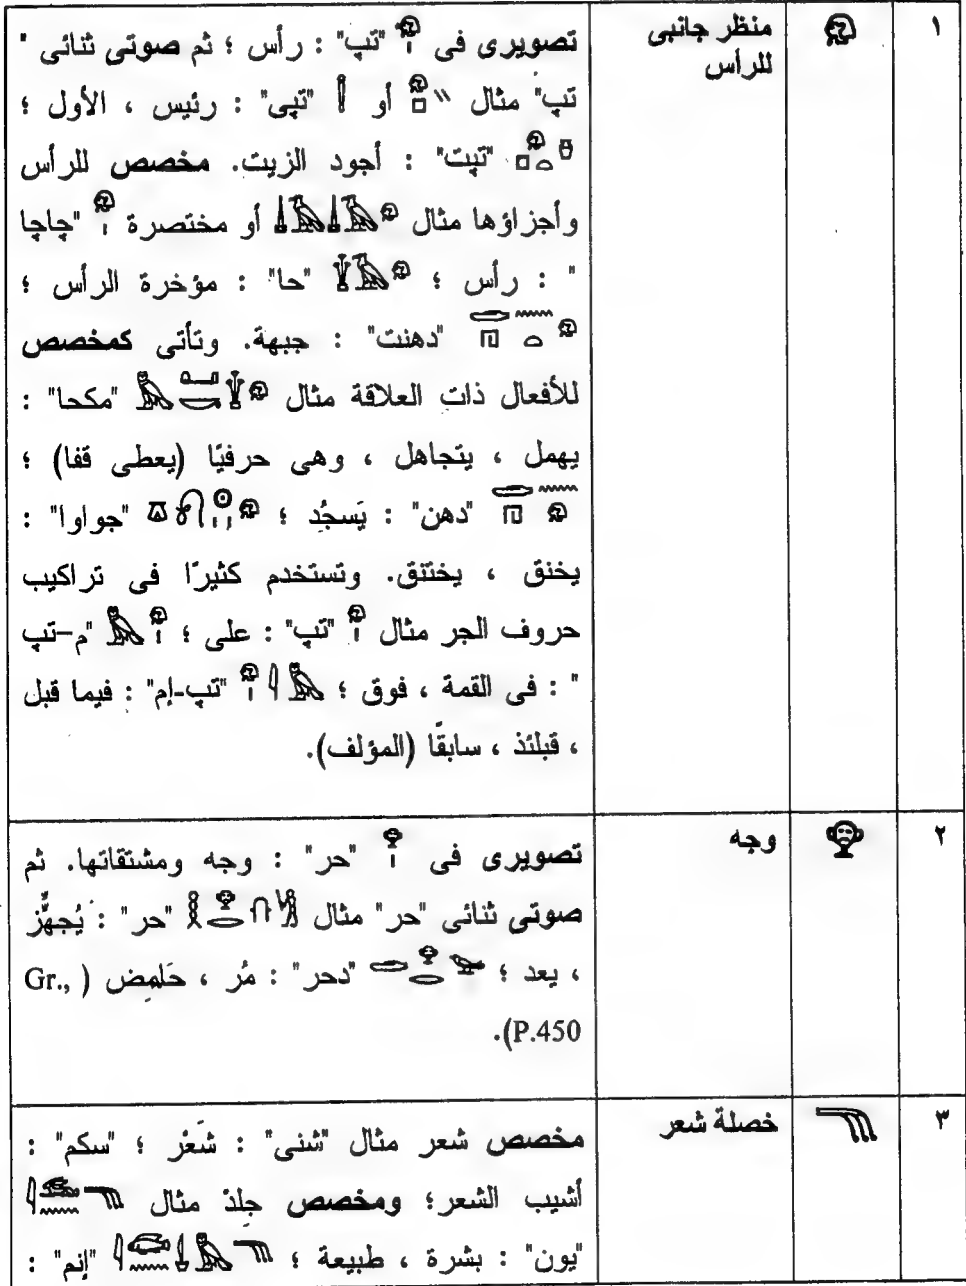 ١
𓁶
منظر جانبى
للرأس
تصويرى فى 𓁶𓏤 "تپ" : رأس ؛ ثم صوتى ثنائى "
تپ" مثال 𓁶𓊪𓏭 أو "تپى" : رئيس ، الأول ؛
"تپت" : أجود الزيت. مخصص للرأس
وأجزاؤها مثال 𓍑𓄿𓍑𓄿𓁶 أو مختصرة 𓁶𓏤 "چاچا
" : رأس ؛ 𓁶 "حا" : مؤخرة الرأس ؛
"دهنت" : جبهة. وتأتى كمخصص
للأفعال ذات العلاقة مثال "مكحا" :
يهمل ، يتجاهل ، وهى حرفيًا (يعطى قفا) ؛
"دهن" : يَسجُد ؛ "جواوا" :
يخنق ، يختنق. وتستخدم كثيرًا فى تراكيب
حروف الجر مثال 𓁶𓏤 "تپ" : على ؛ 𓅓𓁶𓏤 "م-تپ
" : فى القمة ، فوق ؛ 𓁶𓏤𓇋𓅓 "تپ-إم" : فيما قبل
، قبلئذ ، سابقًا (المؤلف).
٢
𓁷
وجه
تصويرى فى 𓁷𓏤 "حر" : وجه ومشتقاتها. ثم
صوتى ثنائى "حر" مثال "حر" : يُجهِّز
، يعد ؛ 𓂧𓁷𓂋𓅪 "دحر" : مُر ، حَامِض ( Gr.,
P.450).
٣
𓁸
خصلة شعر
مخصص شعر مثال "شنى" : شَعْر ؛ "سكم" :
أشيب الشعر؛ ومخصص جِلدْ مثال
"يون" : بشرة ، طبيعة ؛ "إنم" :